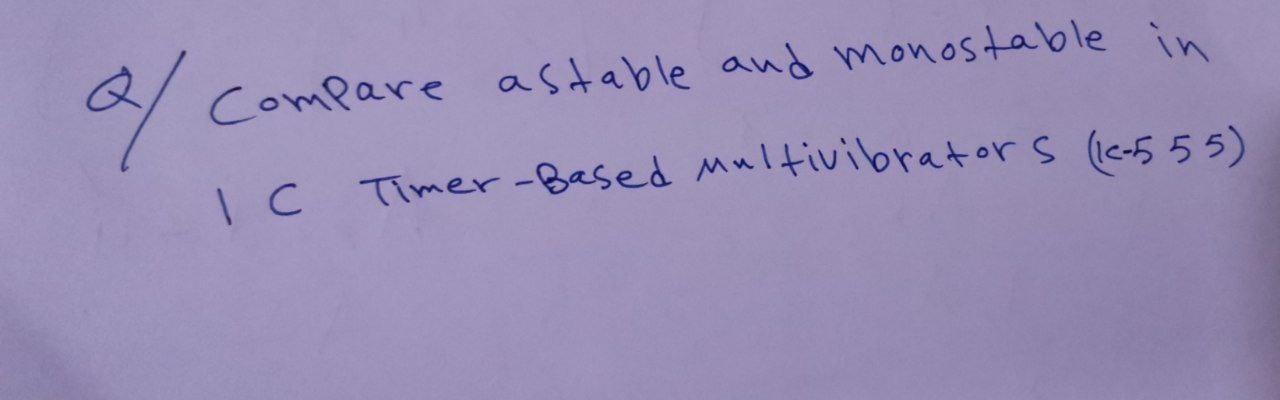 Q/ Compare astable and monostable in
IC Timer-Based Multivibrators (IC-555)